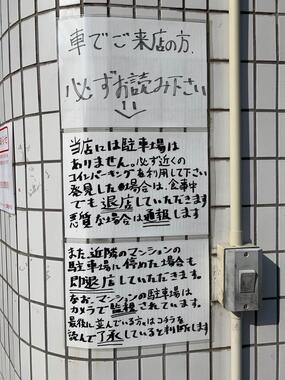 車でご来店の方、
必ずお読み下さい
当店には駐車場は
ありません。必ず近くの
コインパーキングを利用して下さい
発見した場合は、食事中
でも退店していただきます
悪質な場合は通報します
また近隣のマンションの
駐車場に停めた場合も
即退店していただきます。
なお、マンションの駐車場は
カメラで監視されています。
最後に並んでいる方はコチラを
読んで了承していると判断します